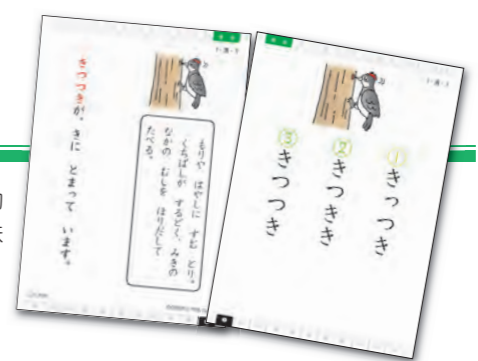 もりや はやしに すむ とり。
くちばしが するどく、みきの
なかの むしを ほりだして
たべる。
きつつきが、きに とまって います。
① きっつき
② きつきき
③ きつつき